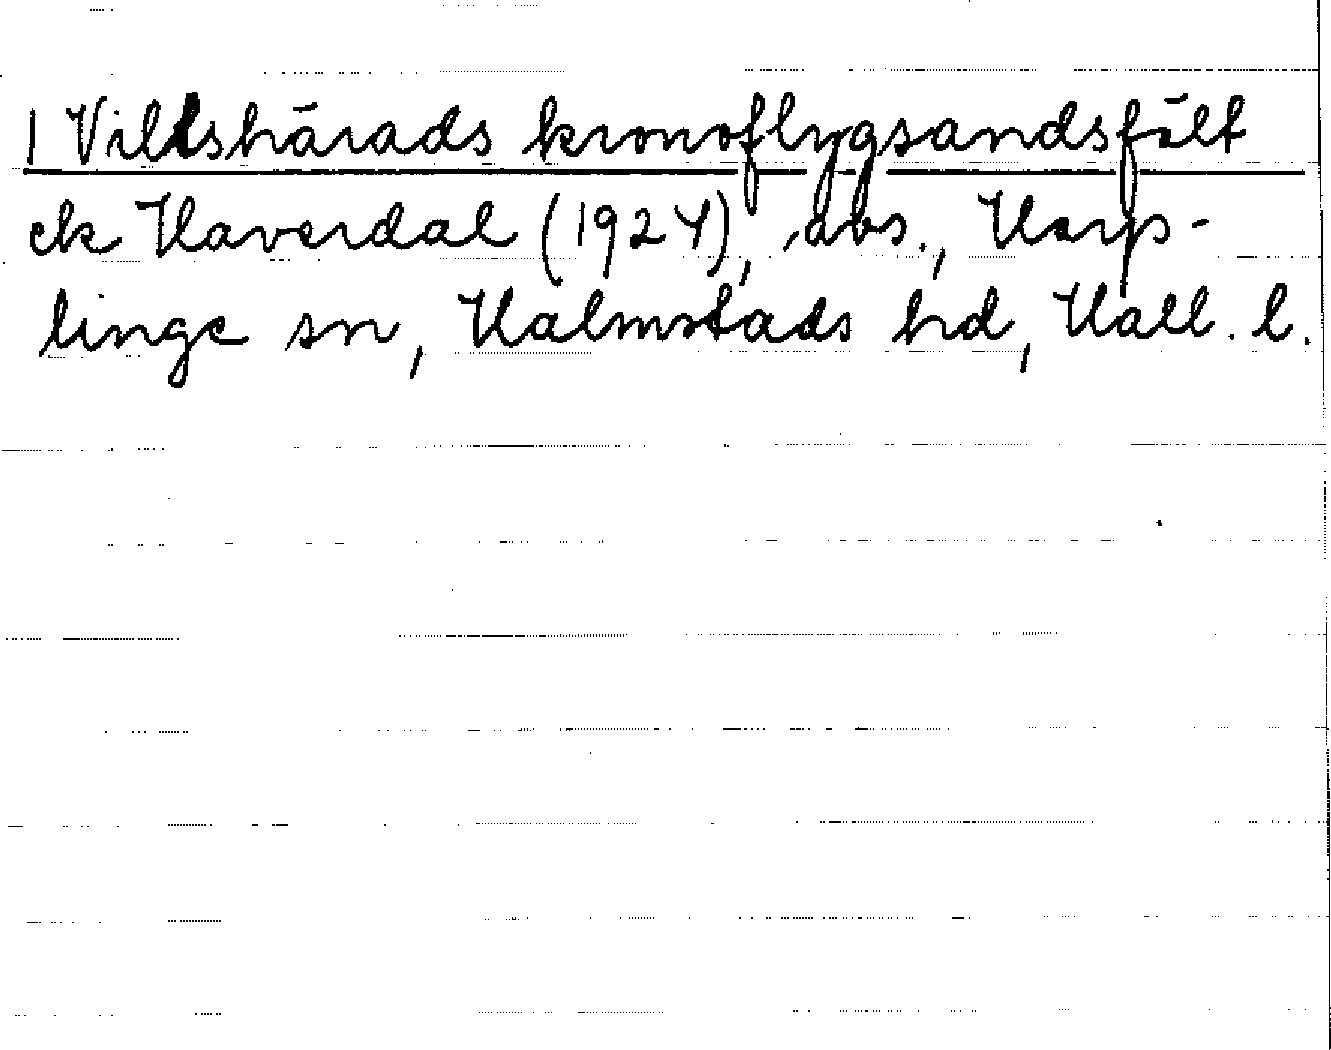 1 Villshärads kronoflygsandsfält
ek Haverdal (1924), avs., Harp-
linge sn, Halmstads hd, Hall. l.